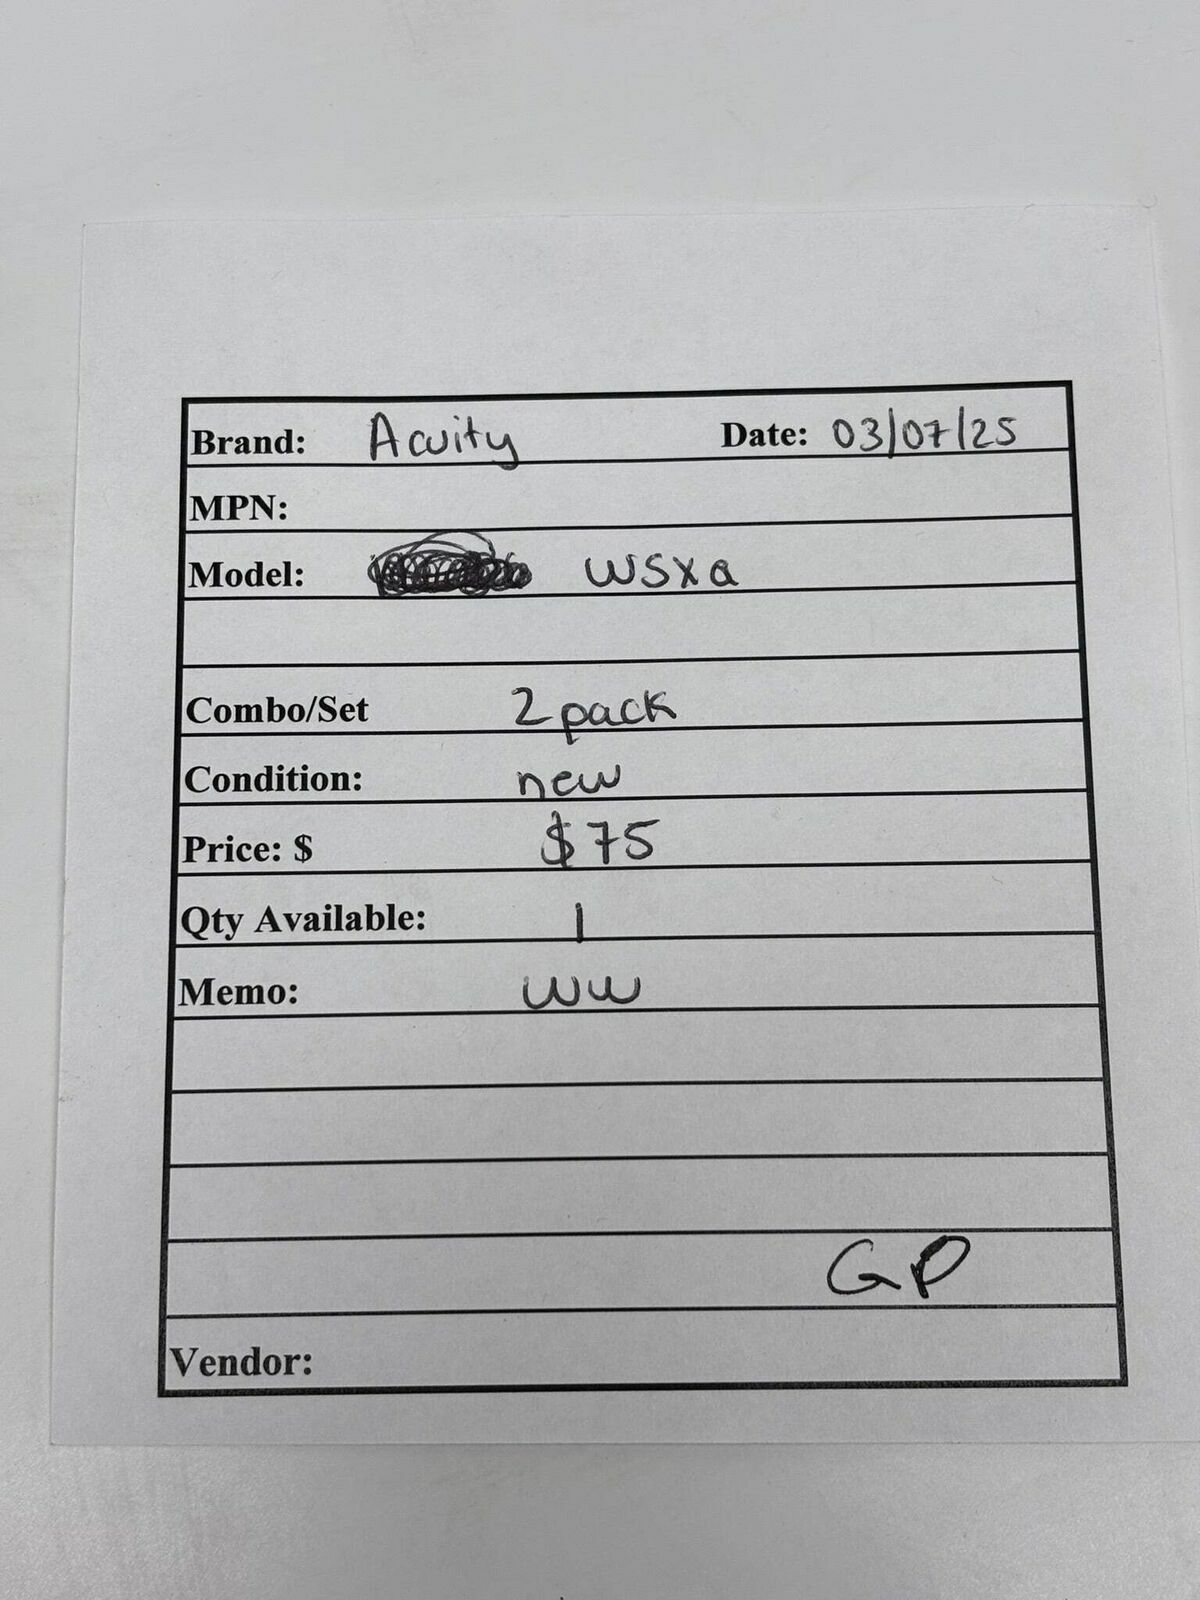 Brand: Acuity Date: 03/07/25
MPN:
Model: wsxa
Combo/Set 2 pack
Condition: new
Price: $ $75
Qty Available: 1
Memo: ww
GP
Vendor: